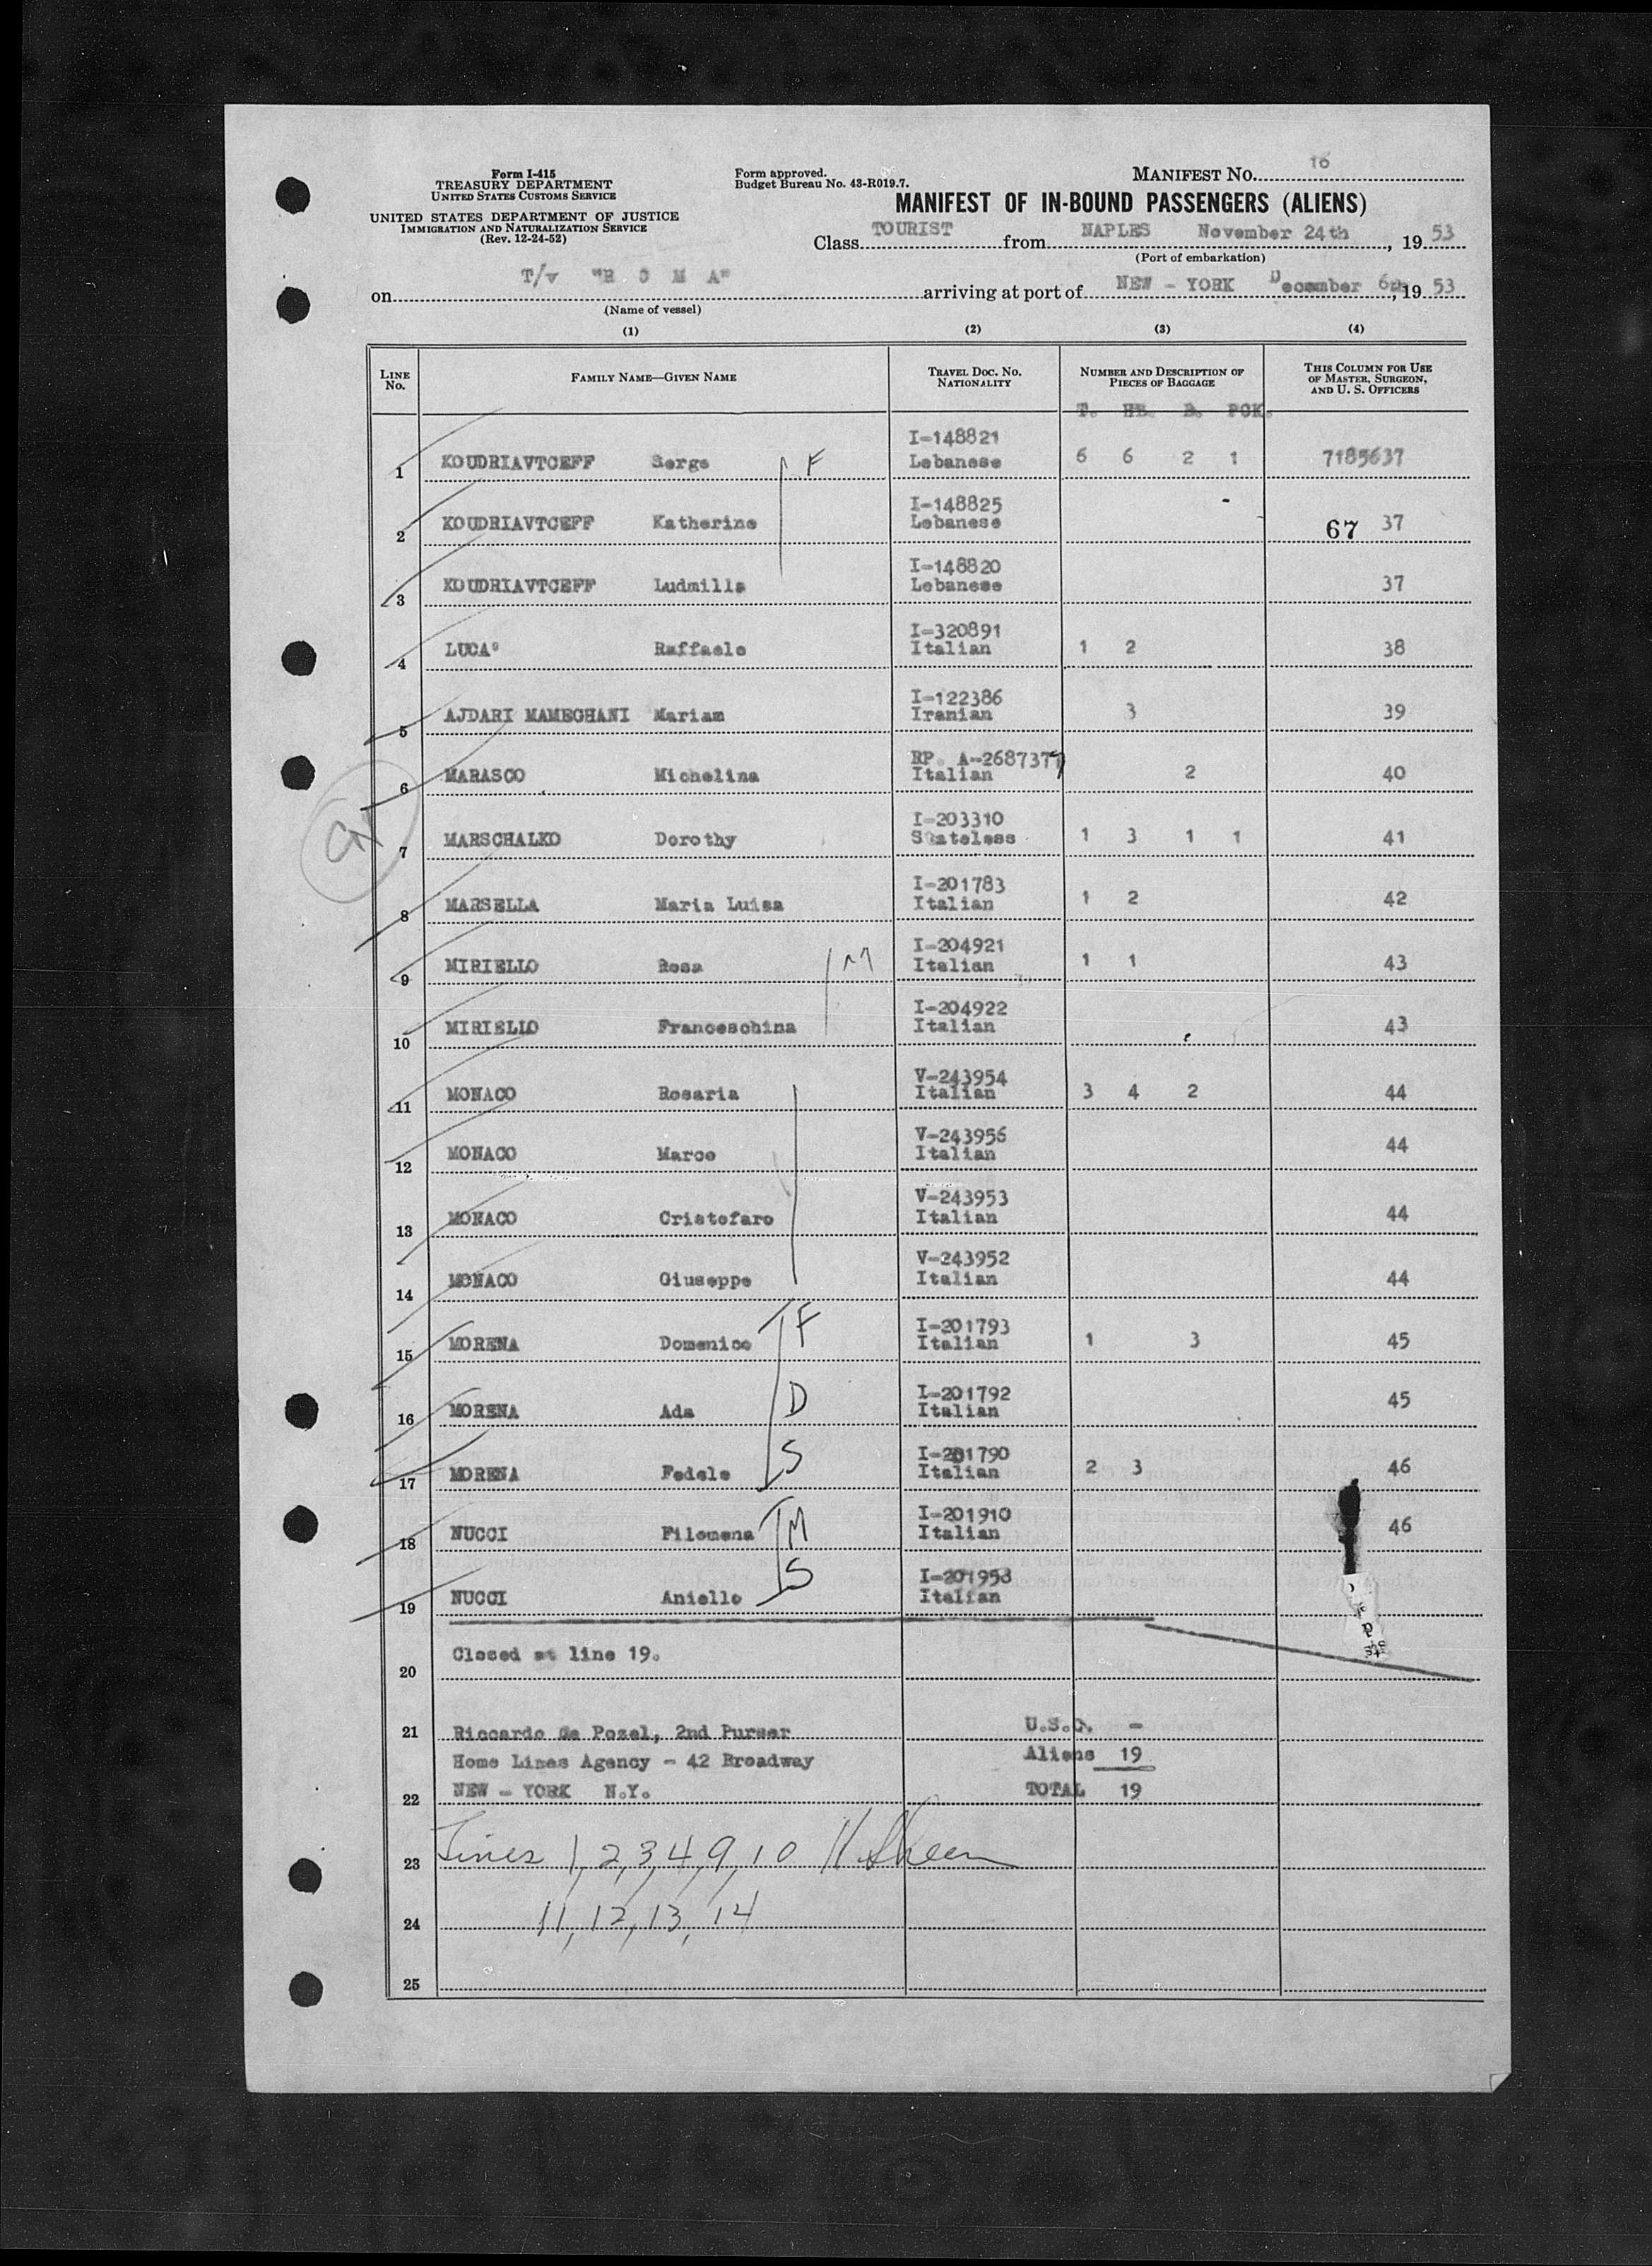 Form I-415
TREASURY DEPARTMENT
UNITED STATES CUSTOMS SERVICE
UNITED STATES DEPARTMENT OF JUSTICE
IMMIGRATION AND NATURALIZATION SERVICE
(Rev. 12-24-52)
Form approved.
Budget Bureau No. 43-R019.7.
MANIFEST No. 16
MANIFEST OF IN-BOUND PASSENGERS (ALIENS)
Class TOURIST from NAPLES November 24th, 19 53
(Port of embarkation)
on T/v "R O M A" arriving at port of NEW - YORK December 6th, 19 53
(Name of vessel)
(1) (2) (3) (4)
LINE No. FAMILY NAME—GIVEN NAME TRAVEL DOC. No. NATIONALITY NUMBER AND DESCRIPTION OF PIECES OF BAGGAGE THIS COLUMN FOR USE OF MASTER, SURGEON, AND U. S. OFFICERS
T. HB. B. PCK.
I-148821
1 KOUDRIAVTCEFF Serge F Lebanese 6 6 2 1 7185637
I-148825
2 KOUDRIAVTCEFF Katherine Lebanese 67 37
I-148820
3 KOUDRIAVTCEFF Ludmilla Lebanese 37
I-320891
4 LUCA' Raffaele Italian 1 2 38
I-122386
5 AJDARI MAMEGHANI Mariam Iranian 3 39
RP. A-2687377
6 MARASCO Michelina Italian 2 40
I-203310
7 MARSCHALKO Dorothy Stateless 1 3 1 1 41
I-201783
8 MARSELLA Maria Luisa Italian 1 2 42
I-204921
9 MIRIELLO Rosa M Italian 1 1 43
I-204922
10 MIRIELLO Franceschina Italian 43
V-243954
11 MONACO Rosaria Italian 3 4 2 44
V-243956
12 MONACO Marco Italian 44
V-243953
13 MONACO Cristofaro Italian 44
V-243952
14 MONACO Giuseppe Italian 44
I-201793
15 MORENA Domenico F Italian 1 3 45
I-201792
16 MORENA Ada D Italian 45
I-201790
17 MORENA Fedele S Italian 2 3 46
I-201910
18 NUCCI Filomena M Italian 46
I-201958
19 NUCCI Aniello S Italian
20 Closed at line 19.
21 Riccardo de Pozel, 2nd Purser U.S.C. -
Home Lines Agency - 42 Broadway Aliens 19
22 NEW - YORK N.Y. TOTAL 19
23 Lines 1, 2, 3, 4, 9, 10
24 11, 12, 13, 14
25